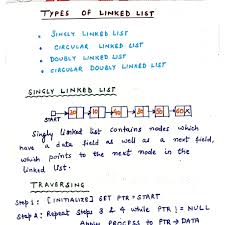 TYPES OF LINKED LIST
• SINGLY LINKED LIST
• CIRCULAR LINKED LIST
• DOUBLY LINKED LIST
• CIRCULAR DOUBLY LINKED LIST
SINGLY LINKED LIST
START
Singly linked list contains nodes which
have a data field as well as a next field,
which points to the next node in the
linked list.
TRAVERSING
Step 1: [INITIALIZE] SET PTR = START
Step 2: Repeat Steps 3 & 4 while PTR != NULL
Apply PROCESS to PTR → DATA